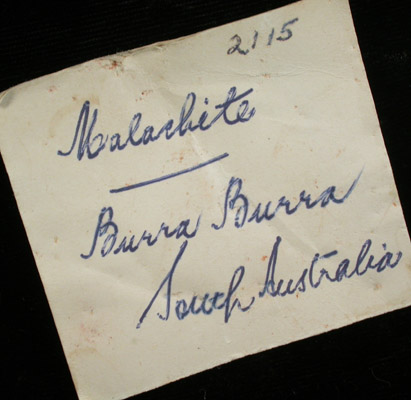 2115
Malachite
Burra Burra
South Australia